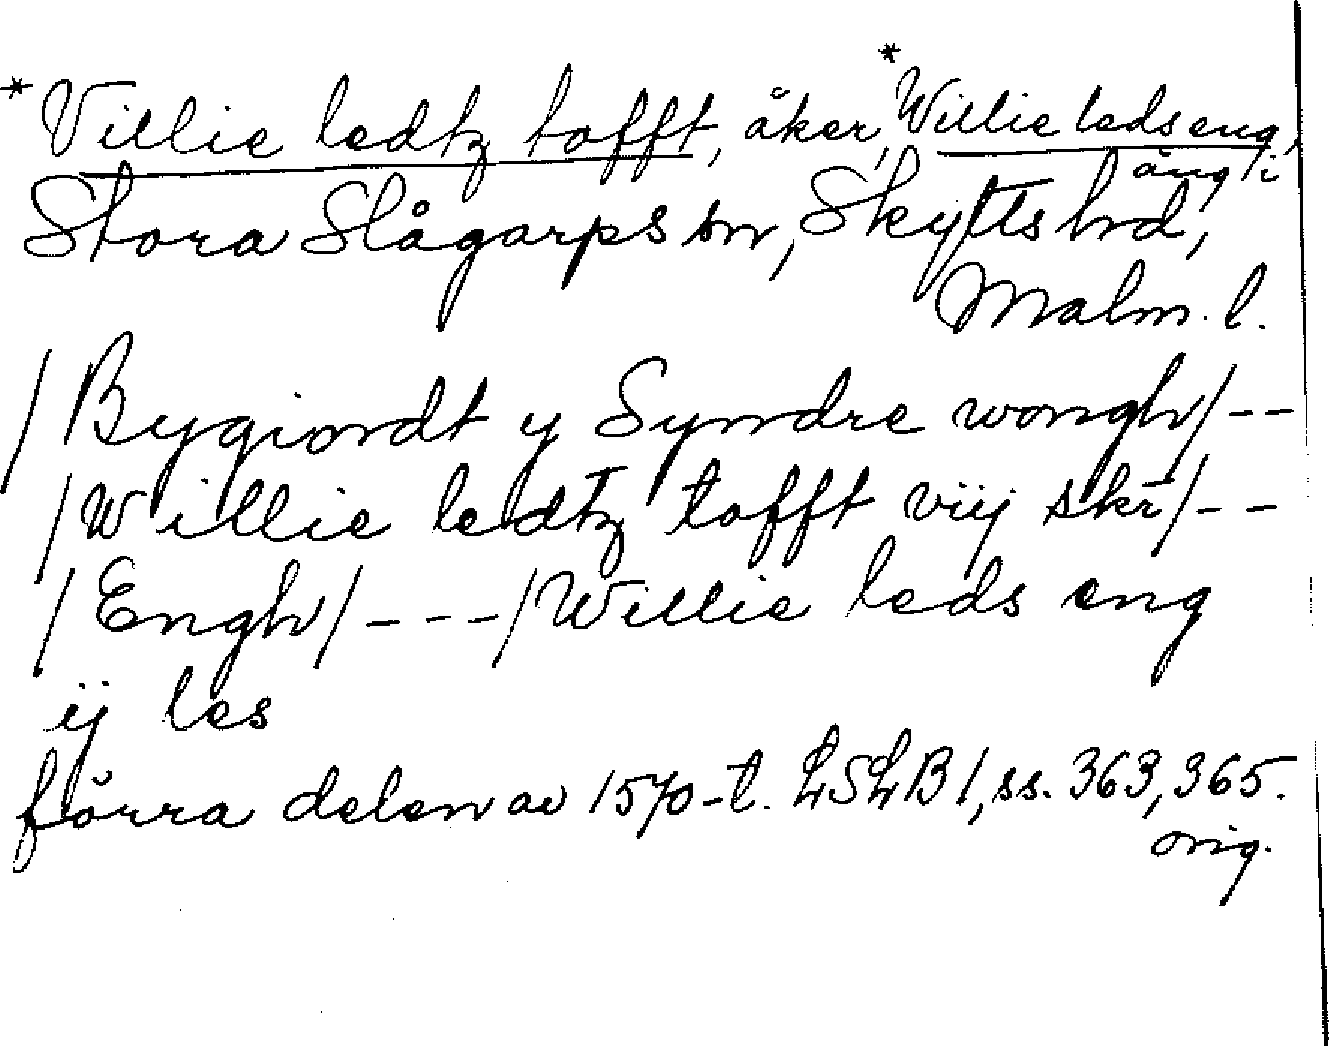 *Villie ledtz tofft, åker, *Willie leds eng, äng i
Stora Slågarps sn, Skytts hd,
Malm. l.
/Bygiordt y Syndre wongh/--
/Willie ledtz tofft viij skr/--
/Engh/---/Willie leds eng
ij les
förra delen av 1570-t. LSLB 1, ss. 363, 365.
orig.